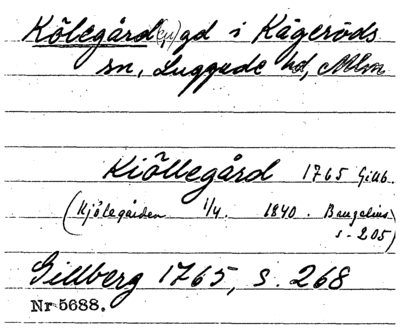 Kölegård(en) gd i Kågeröds
sn, Luggude hd, Mlm
Kiöllegård 1765 Gillb.
(Kjölegården 1/4. 1840. Bangelius
s. 205)
Gillberg 1765, s. 268
Nr 5688.